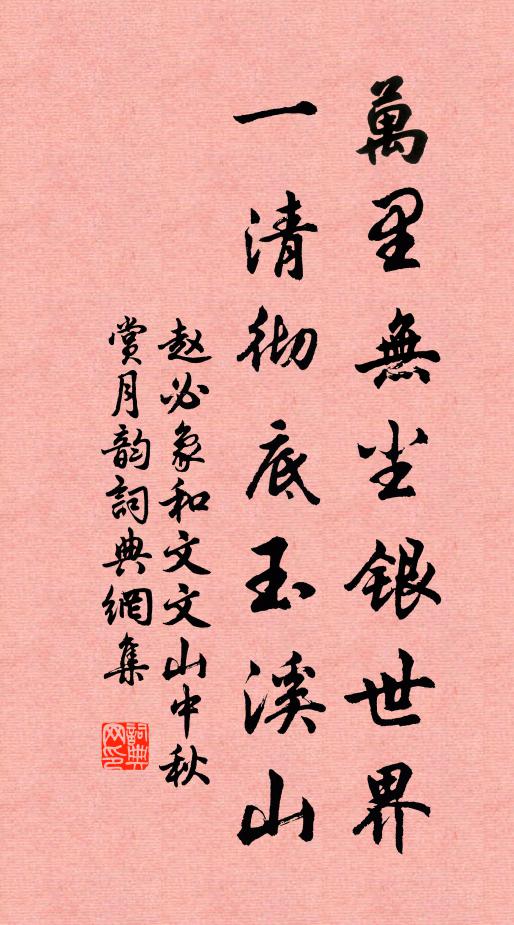 萬里無尘銀世界
一清彻底玉溪山
赵必象和文文山中秋
赏月韵詞典網集
詞典网印